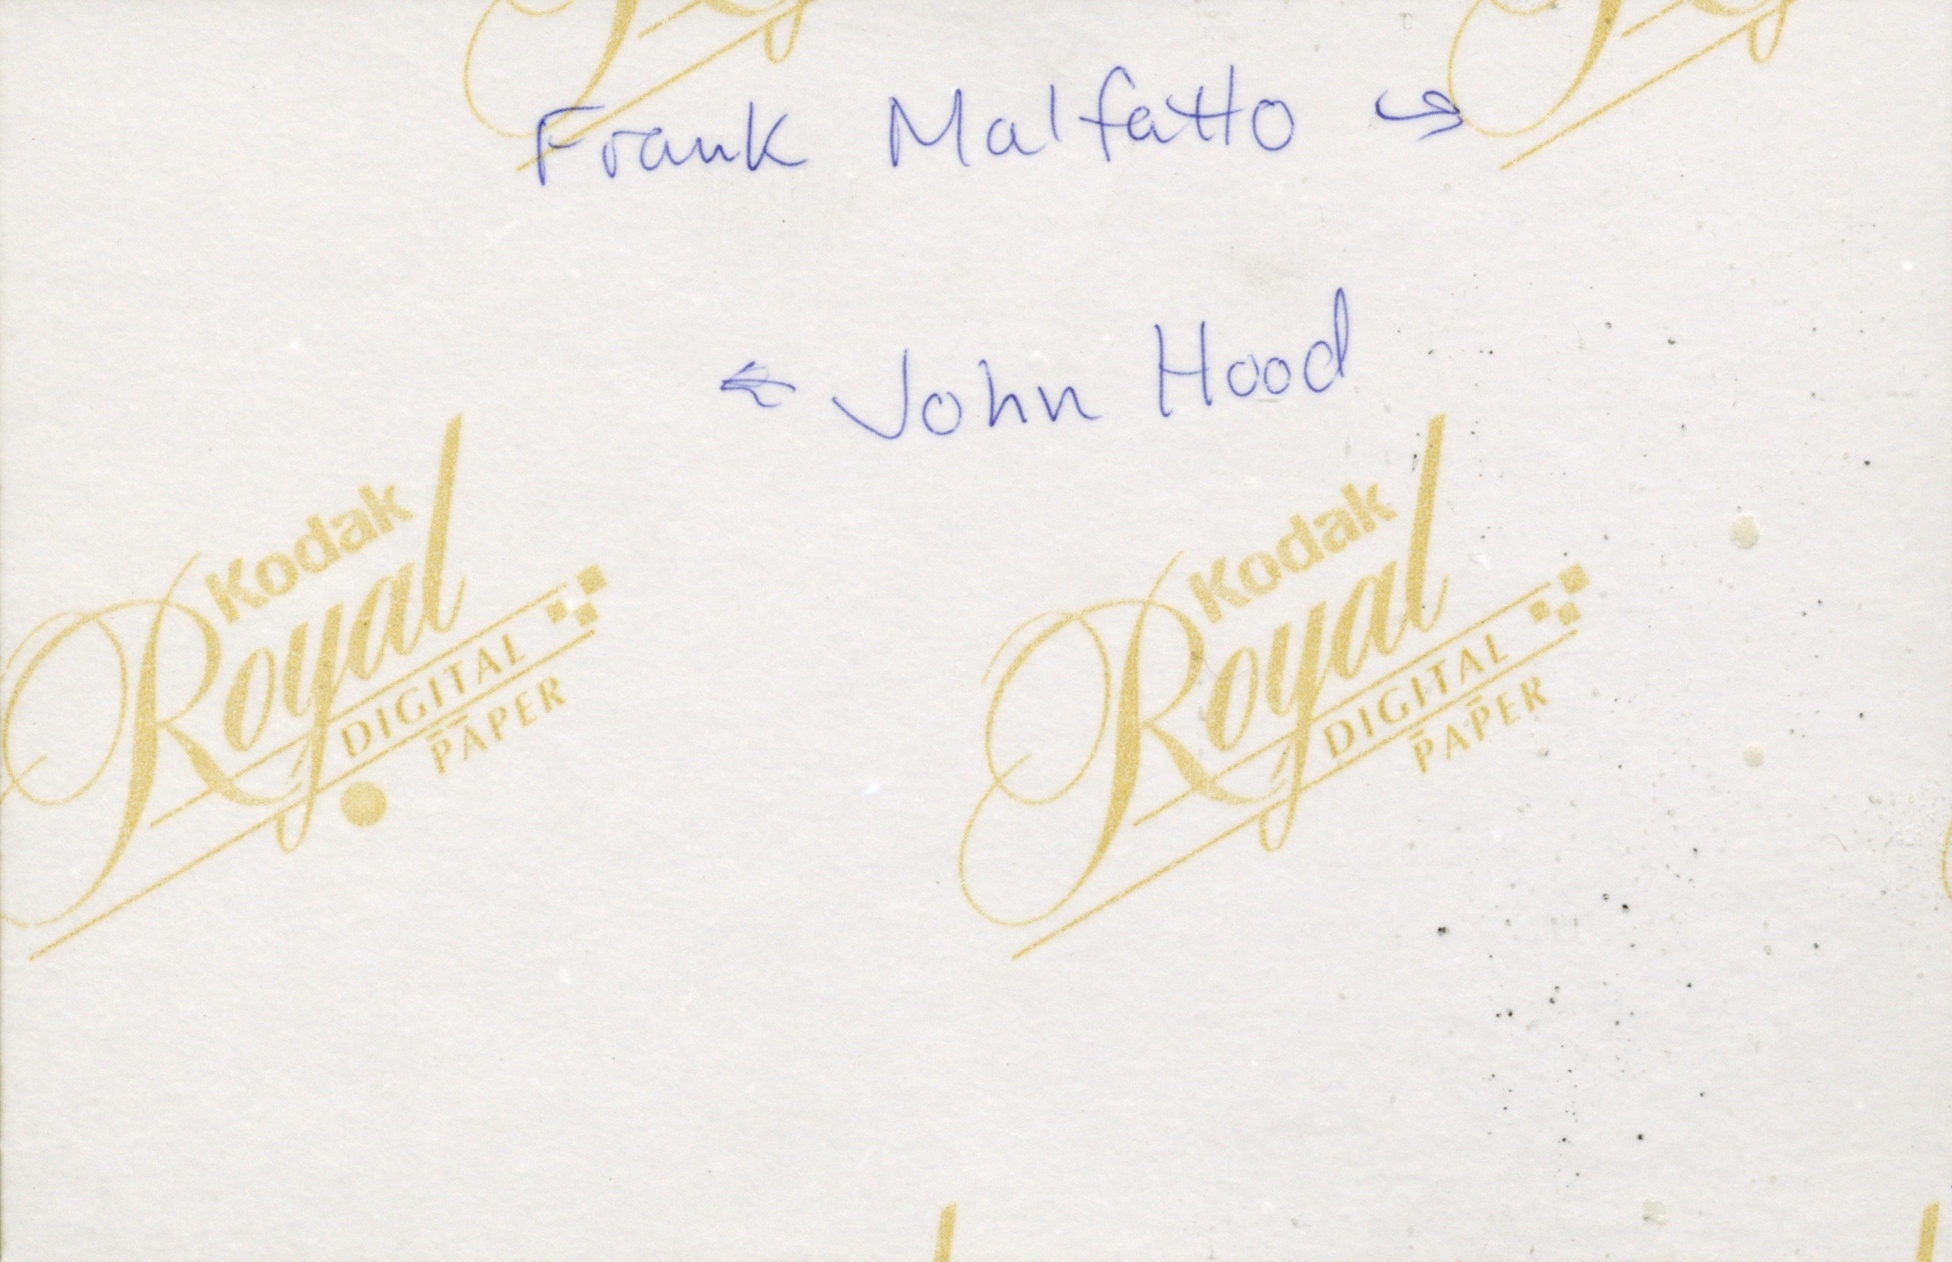 Frank Malfatto →
← John Hood
Kodak
Royal
DIGITAL
PAPER
Kodak
Royal
DIGITAL
PAPER